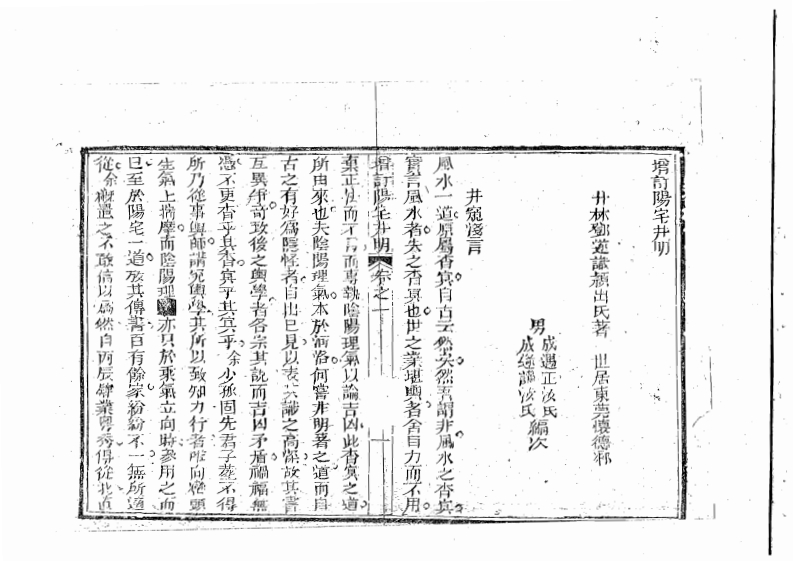 增訂陽宅井明
井林鄧 著 世居東莞懷德鄉
男成遇正 氏
成 氏 編次
井窺淺言
風水一道原屬杳冥自古云然矣然吾謂非風水之杳冥
實言風水者失之杳冥也世之業堪輿者舍目力而不用
棄正 而不 而專執陰陽理氣以論吉凶此杳冥之道
增訂陽宅井明 卷之一
所由來也夫陰陽理氣本於河洛何嘗非明著之道而自
古之有好為隱怪者自出己見以表 識之高深故其書
互異 奇致後之輿學者各宗其說而吉凶矛盾禍福無
憑不更杳乎其杳冥乎其冥乎余少孫固先君子葬不得
所乃從事輿師講究輿學其所以致知力行者唯向巒頭
生氣上揣摩而陰陽理 亦只於乘氣立向時參用之而
已至於陽宅一道 其傳書百有餘家紛紛不一無所適
從余概置之不敢信以為然自丙辰肄業粵秀得從北直